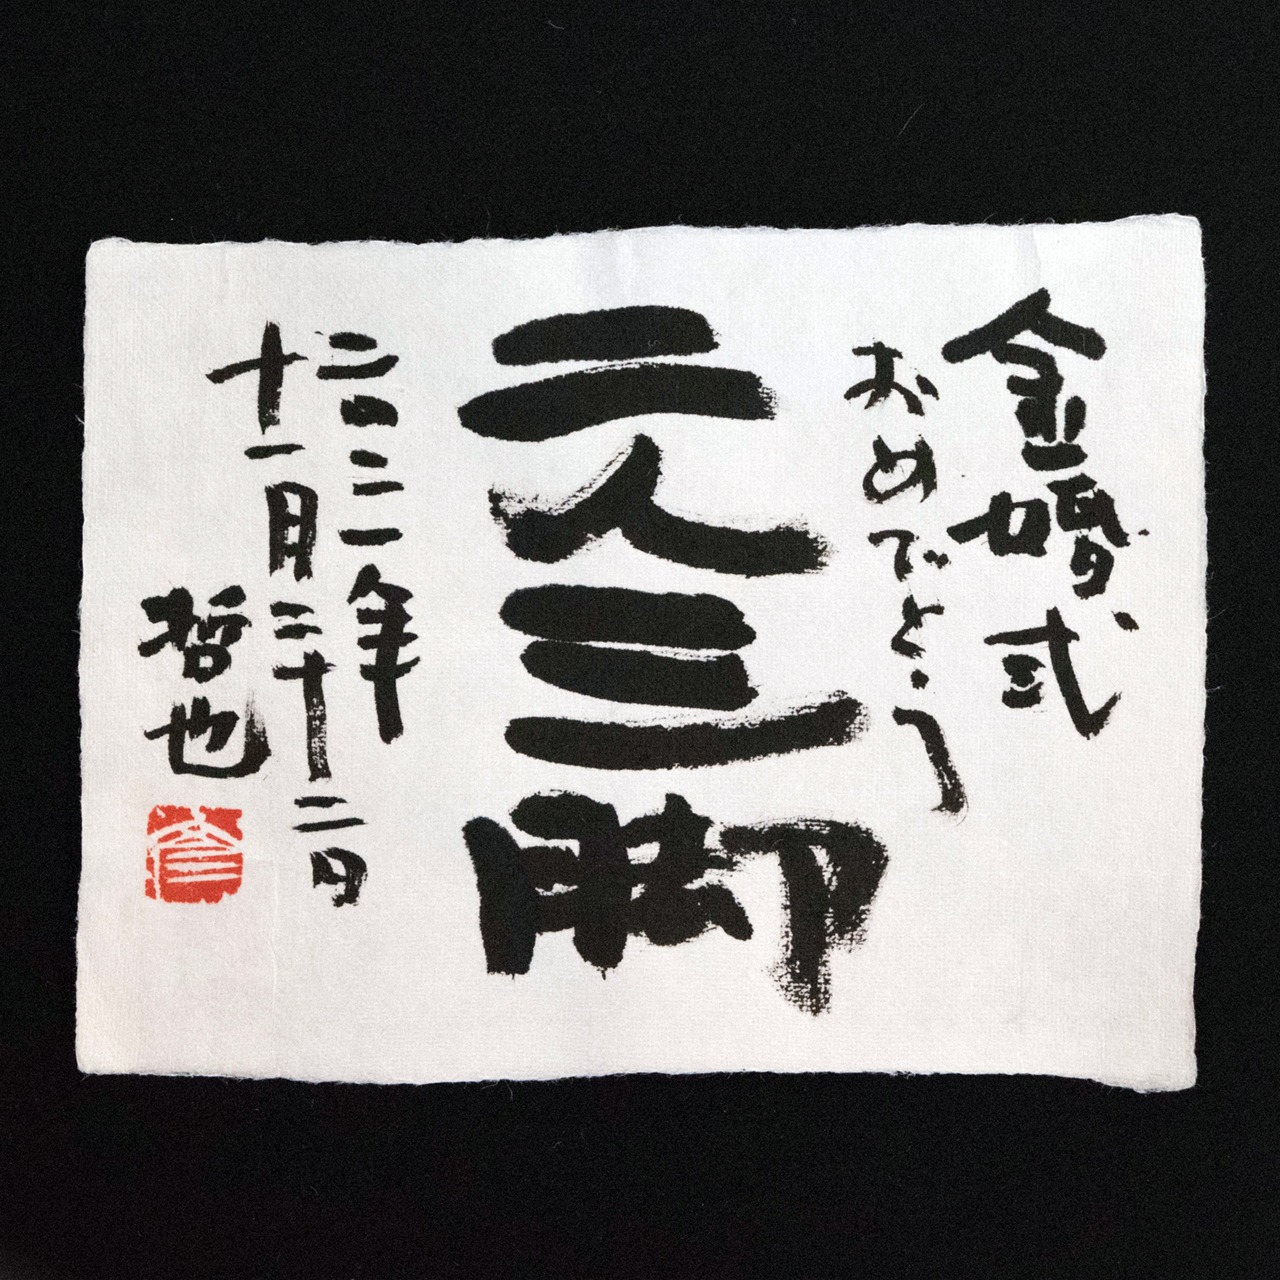 金婚式
おめでとう
二人三脚
二〇二一年
十一月二十二日
哲也